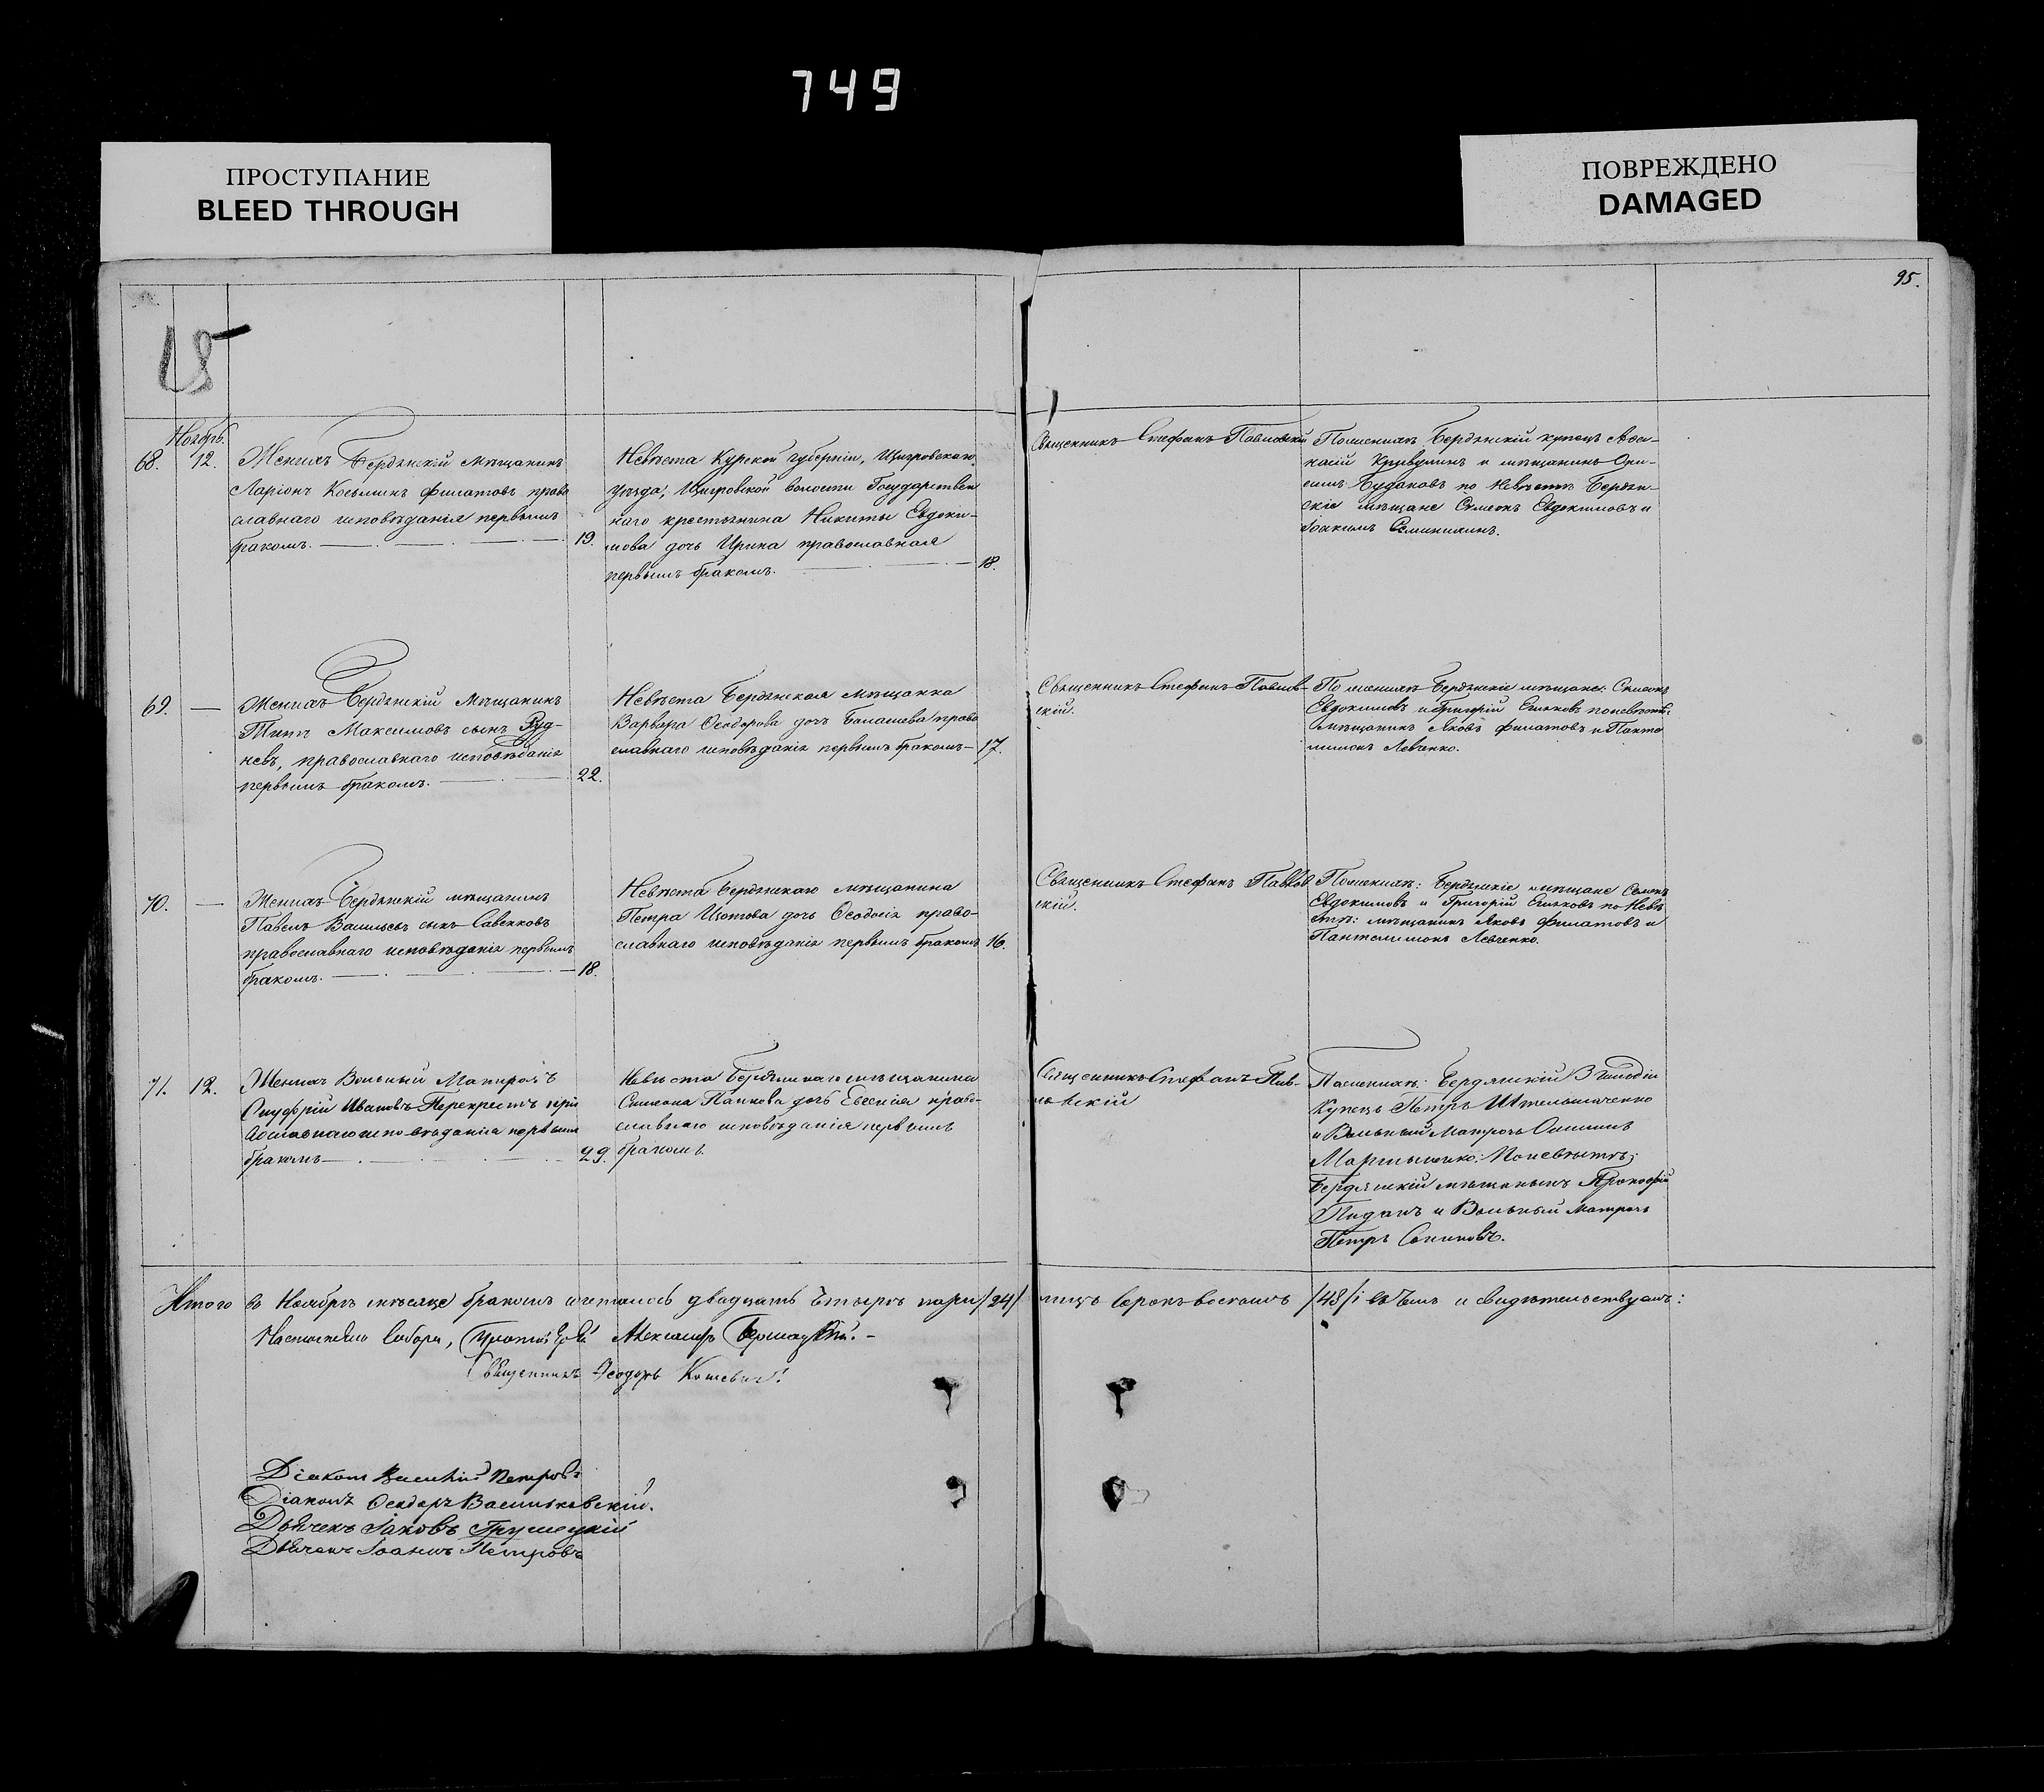 749
ПРОСТУПАНИЕ
BLEED THROUGH
ПОВРЕЖДЕНО
DAMAGED
95.
Ноябрь.
68. 12.
Женихъ Бердянскій мѣщанинъ
Ларіонъ Косьминъ Филатовъ право
славнаго исповѣданія первымъ
бракомъ. 19.
Невѣста Курской губерніи, Щигровскаго
уѣзда, Щигровской волости Государствен
наго крестьянина Никиты Евдоки-
мова дочь Ирина православная
первымъ бракомъ. 18.
Священникъ Стефанъ Павловскій
По женихѣ Бердянскій купецъ Афа-
насій и мѣщанинъ Они-
симъ Будаковъ по Невѣстѣ Бердян-
скіе мѣщане Симеонъ Евдокимовъ и
Іоакимъ
69. —
Женихъ Бердянскій Мѣщанинъ
Титъ Максимовъ сынъ Руд-
невъ, православнаго исповѣданія
первымъ бракомъ. 22.
Невѣста Бердянская мѣщанка
Варвара Ѳеодорова дочь Балашева право
славнаго исповѣданія первымъ бракомъ — 17.
Священникъ Стефанъ Павлов-
скій.
По женихѣ Бердянскіе мѣщане: Симеонъ
Евдокимовъ и Григорій по невѣстѣ:
мѣщанинъ Яковъ Филатовъ и Панте
лимонъ Левченко.
70. —
Женихъ Бердянскій мѣщанинъ
Павелъ Васильевъ сынъ Савенковъ
православнаго исповѣданія первымъ
бракомъ. 18.
Невѣста Бердянскаго мѣщанина
Петра дочь Ѳеодосія право-
славнаго исповѣданія первымъ бракомъ 16.
Священникъ Стефанъ Павлов
скій.
По женихѣ: Бердянскіе мѣщане Семенъ
Евдокимовъ и Григорій по Невѣ
стѣ: мѣщанинъ Яковъ Филатовъ и
Пантелимонъ Левченко.
71. 12.
Женихъ Вольный Матрозъ
Онуфрій Ивановъ Перекрестъ пра
вославнаго исповѣданія первымъ
бракомъ — 29.
Невѣста Бердянскаго мѣщанина
Симеона Папкова дочь Евгенія право-
славнаго исповѣданія первымъ
бракомъ.
Священникъ Стефанъ Пав-
ловскій
По женихѣ: Бердянскій 3 гильдіи
Купецъ Петръ
и Вольный Матрозъ
Мартыненко: По невѣстѣ:
Бердянскій мѣщанинъ Прокофій
и Вольный Матрозъ
Петръ
Итого въ Ноябрѣ мѣсяцѣ бракомъ сочеталось двадцать четыре пары /24/ лицъ сорокъ восемь /48/ въ чемъ и свидѣтельствуемъ:
Настоятель Собора, Протоіерей Александръ
Священникъ Ѳеодоръ
Діаконъ Василій Петровъ
Діаконъ Ѳеодоръ Васильковскій.
Дьячекъ Іаковъ Грушецкій
Дьячекъ Іоаннъ Петровъ